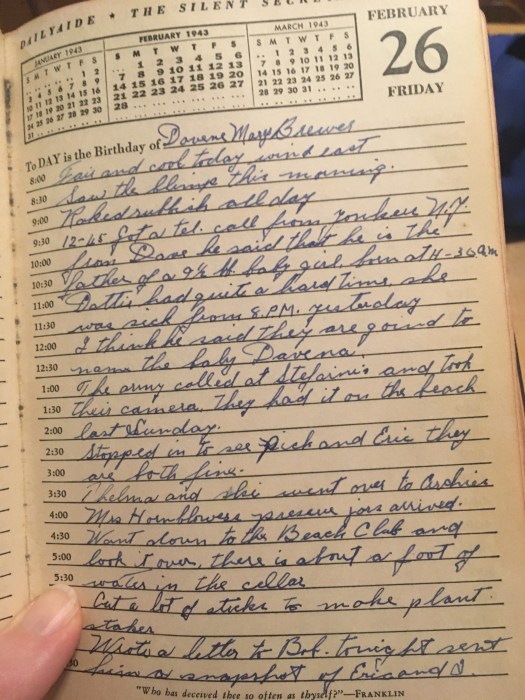 DAILYAIDE ★ THE SILENT SECRE
FEBRUARY
26
FRIDAY
JANUARY 1943
S M T W T F S
.. .. .. .. .. 1 2
3 4 5 6 7 8 9
10 11 12 13 14 15 16
17 18 19 20 21 22 23
24 25 26 27 28 29 30
31 .. .. .. .. .. ..
FEBRUARY 1943
S M T W T F S
.. 1 2 3 4 5 6
7 8 9 10 11 12 13
14 15 16 17 18 19 20
21 22 23 24 25 26 27
28 .. .. .. .. .. ..
MARCH 1943
S M T W T F S
.. 1 2 3 4 5 6
7 8 9 10 11 12 13
14 15 16 17 18 19 20
21 22 23 24 25 26 27
28 29 30 31 .. .. ..
To DAY is the Birthday of Davene Mary Brewer
8:00 Fair and cool today wind east
8:30 Saw the blimp this morning.
9:00 Raked rubbish all day
9:30 12-45 Got a tel. call from Yonkers N.Y.
10:00 from Dave he said that he is the
10:30 father of a 9½ lb baby girl born at 4-30 am
11:00 Pattie had quite a hard time, she
11:30 was sick from 8 PM. yesterday
12:00 I think he said they are going to
12:30 name the baby Davena.
1:00 The army called at Stefaini's and took
1:30 their camera. They had it on the beach
2:00 last Sunday.
2:30 Stopped in to see Dick and Eric they
3:00 are both fine.
3:30 Thelma and she went over to Archies
4:00 Mrs Hornblowers preserve jars arrived.
4:30 Want down to the Beach Club and
5:00 look it over, there is about a foot of
5:30 water in the cellar
Cut a lot of sticks to make plant
stakes
Wrote a letter to Bob. tonight sent
him a snapshot of Eric and I.
"Who has deceived thee so often as thyself?"—FRANKLIN